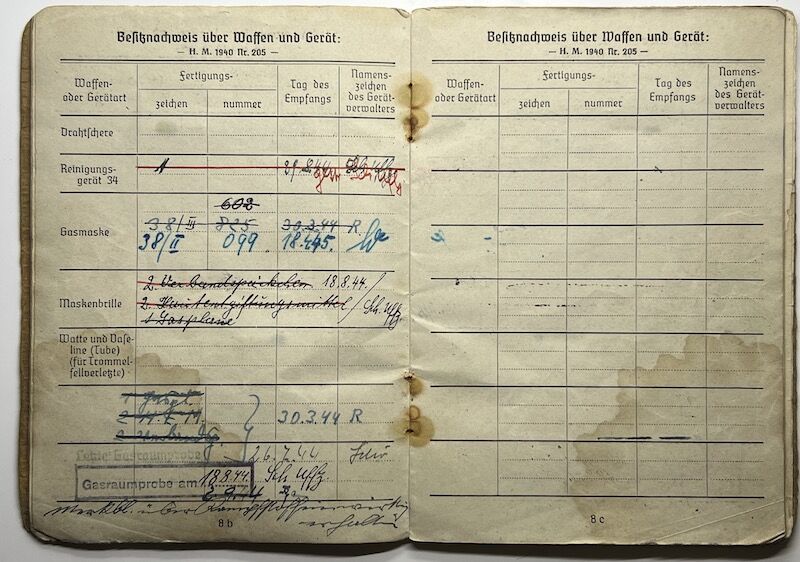 Besitznachweis über Waffen und Gerät:
— H. M. 1940 Nr. 205 —
Waffen- oder Gerätart
Fertigungs-
zeichen
nummer
Tag des Empfangs
Namens- zeichen des Gerät- verwalters
Drahtschere
Reinigungs- gerät 34
1
Gasmaske
602
38/III 825 30.3.44 R
38/II 099 18.4.45
Maskenbrille
2 Verbandspäckchen 18.8.44. /
2 Hautentgiftungsmittel / Sch. Uffz.
1 Gasplane
Watte und Vase- line (Tube) (für Trommel- fellverletzte)
30.3.44 R
Letzte Gasraumprobe 26.7.44
Gasraumprobe am 18.8.44. Sch. Uffz.
Merkbl. über
erhalten
8b
Besitznachweis über Waffen und Gerät:
— H. M. 1940 Nr. 205 —
Waffen- oder Gerätart
Fertigungs-
zeichen
nummer
Tag des Empfangs
Namens- zeichen des Gerät- verwalters
8c